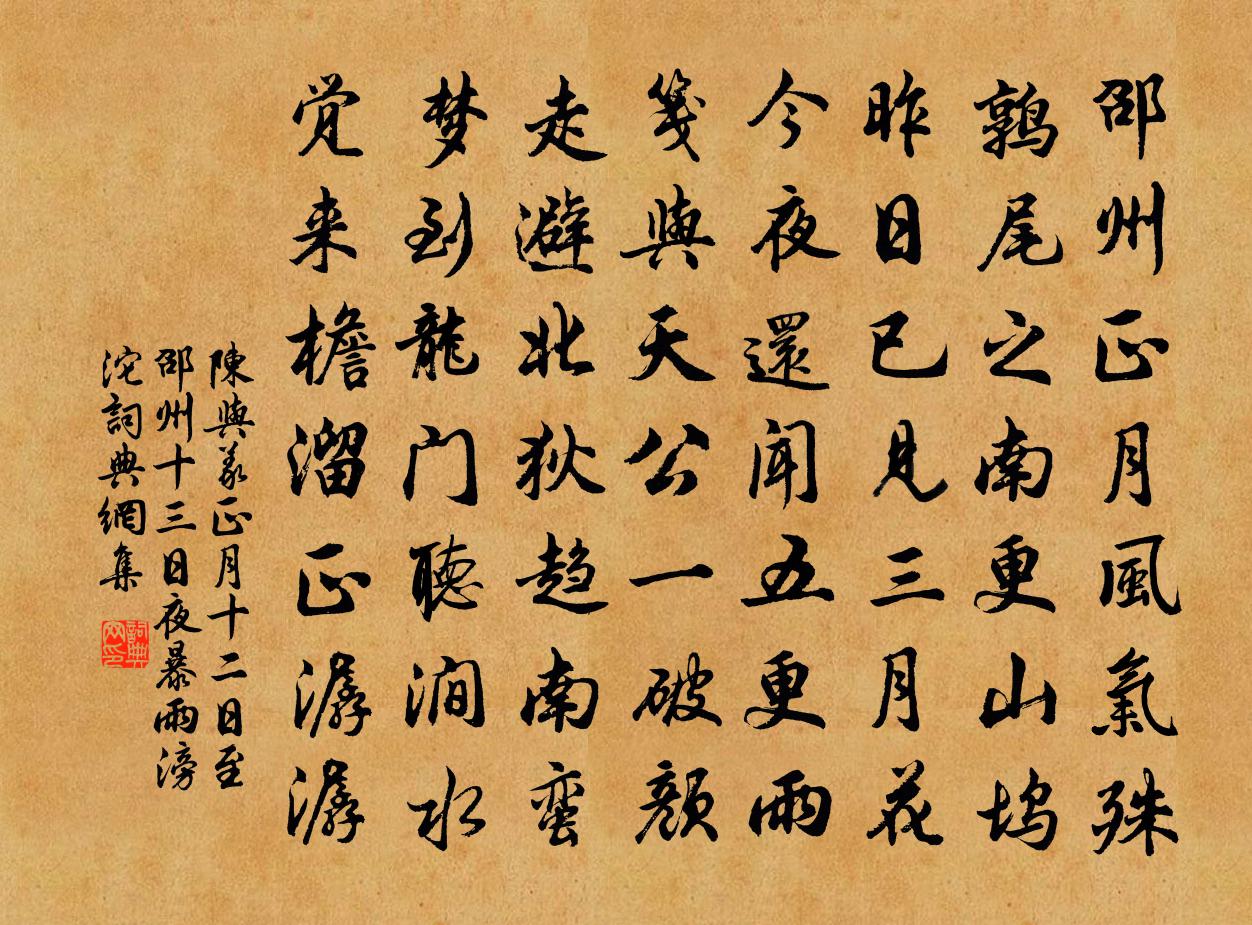 邵州正月風氣殊
鶉尾之南更山塢
昨日已見三月花
今夜還聞五更雨
箋與天公一破顏
走避北狄趋南蛮
梦到龍门聽澗水
觉来檐溜正潺潺
陳與義正月十二日至
邵州十三日夜暴雨滂
沱詞典網集
詞典网印